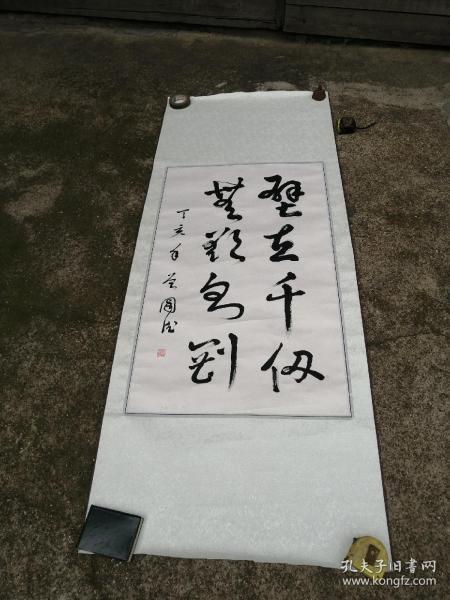 壁立千仞
無欲則剛
丁亥年
孔夫子旧书网
www.kongfz.com